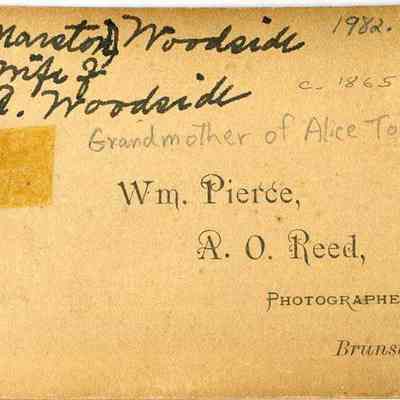 Marston) Woodside 1982.
Wife of
A. Woodside c. 1865
Grandmother of Alice To
Wm. Pierce,
A. O. Reed,
PHOTOGRAPHE
Bruns